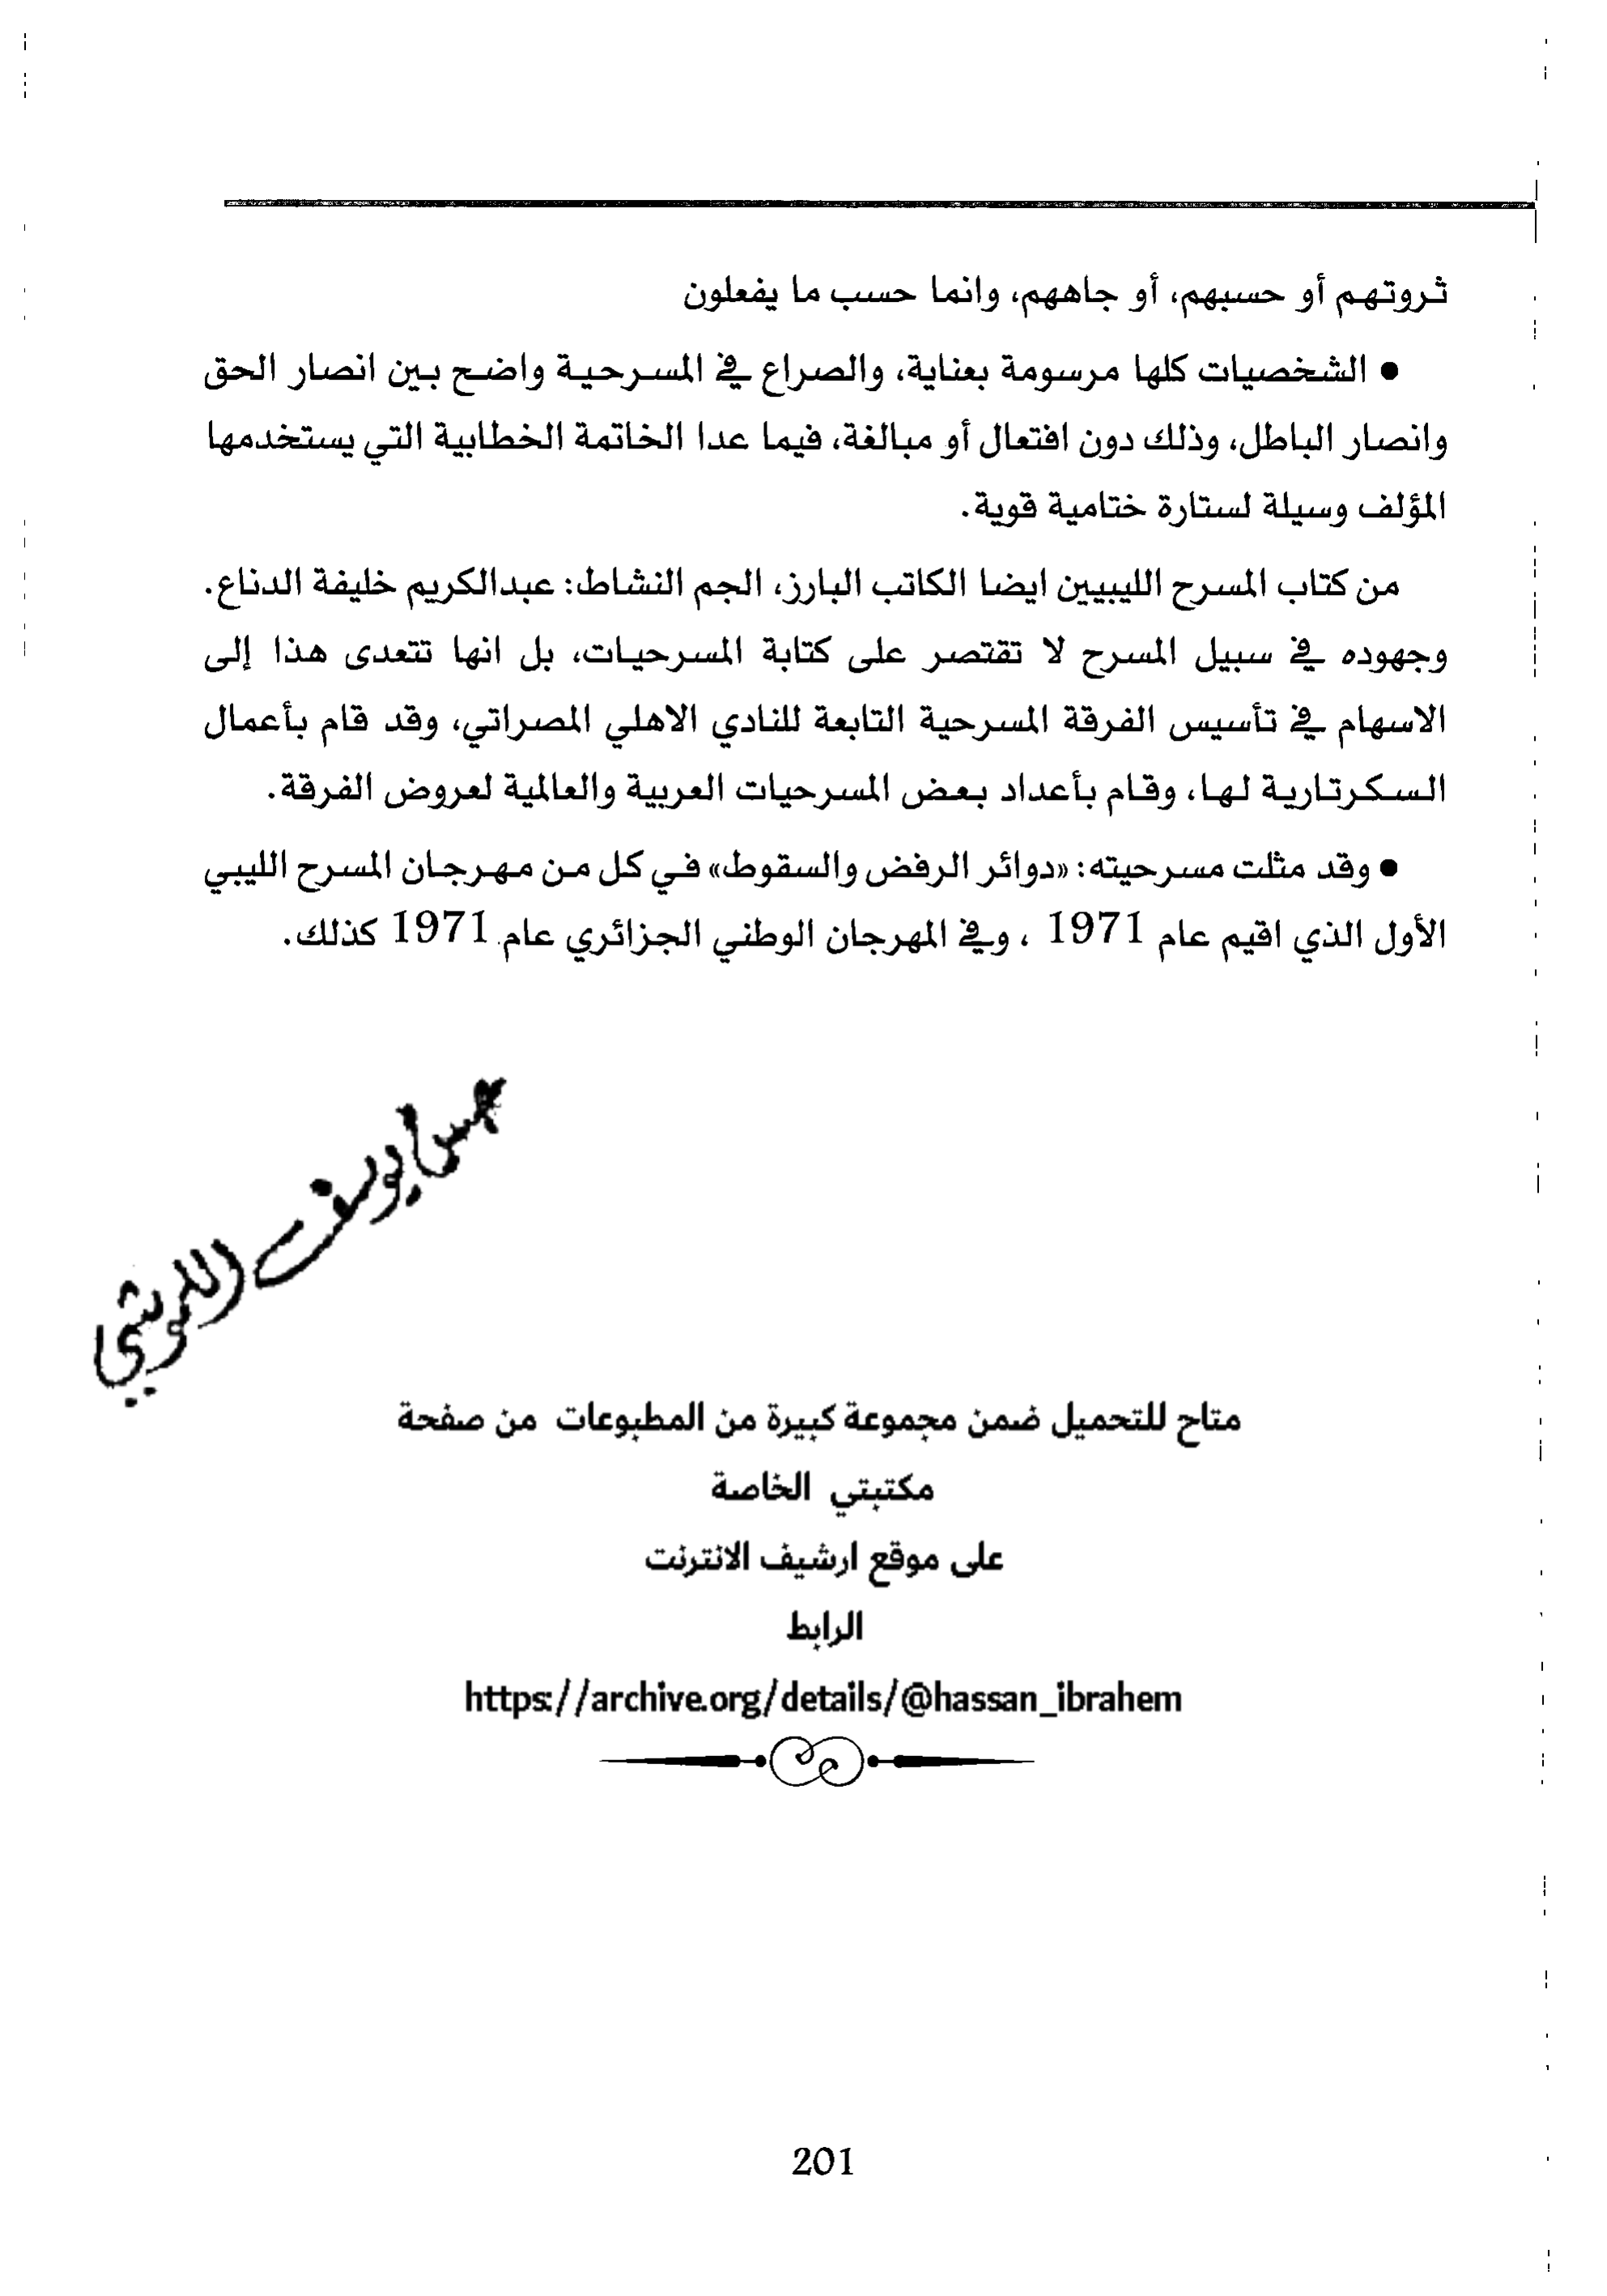 ثروتهم أو حسبهم، أو جاههم، وانما حسب ما يفعلون
● الشخصيات كلها مرسومة بعناية، والصراع في المسرحية واضح بين انصار الحق
وانصار الباطل، وذلك دون افتعال أو مبالغة، فيما عدا الخاتمة الخطابية التي يستخدمها
المؤلف وسيلة لستارة ختامية قوية.
من كتاب المسرح الليبيين ايضا الكاتب البارز، الجم النشاط: عبدالكريم خليفة الدناع.
وجهوده في سبيل المسرح لا تقتصر على كتابة المسرحيات، بل انها تتعدى هذا إلى
الاسهام في تأسيس الفرقة المسرحية التابعة للنادي الاهلي المصراتي، وقد قام بأعمال
السكرتارية لها، وقام بأعداد بعض المسرحيات العربية والعالمية لعروض الفرقة.
● وقد مثلت مسرحيته: «دوائر الرفض والسقوط» في كل من مهرجان المسرح الليبي
الأول الذي اقيم عام 1971 ، وفي المهرجان الوطني الجزائري عام 1971 كذلك.
يوسف
متاح للتحميل ضمن مجموعة كبيرة من المطبوعات من صفحة
مكتبتي الخاصة
على موقع ارشيف الانترنت
الرابط
https://archive.org/details/@hassan_ibrahem
201